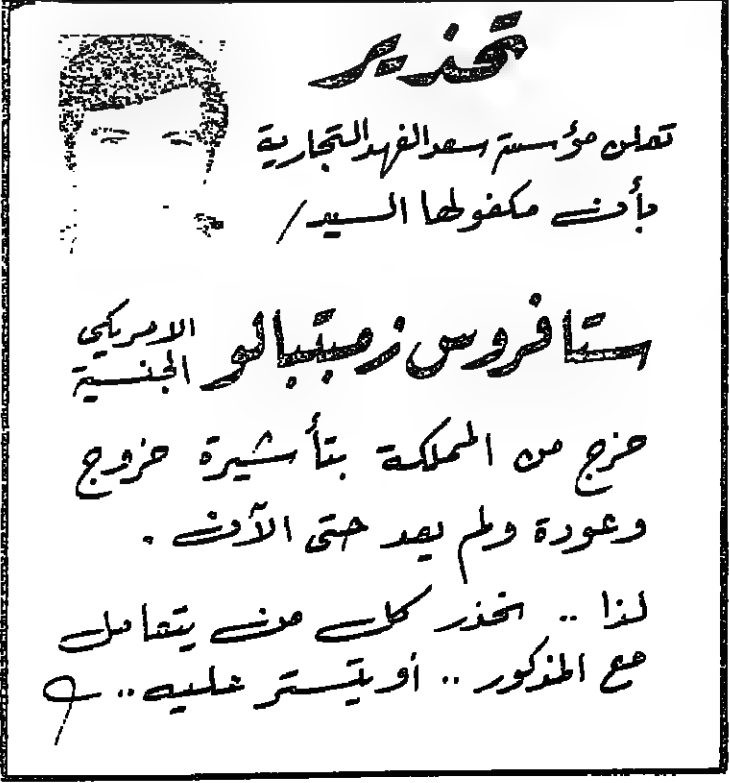 تحذير
تعلن مؤسسة سعد الفهد التجارية
بأن مكفولها السيد /
ستافروس زمبتبالو
الامريكي
الجنسية
خرج من المملكة بتأشيرة خروج
وعودة ولم يعد حتى الآن .
لذا .. نحذر كل من يتعامل
مع المذكور .. أو يتستر عليه ..